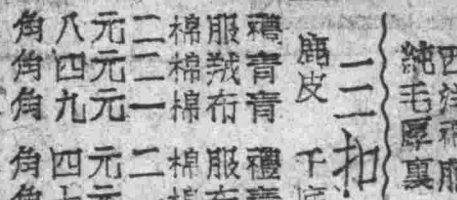 純毛厚裏
一二扣
鹿皮
禮服棉二元八角
青羢棉二元四角
青布棉一元九角
千底
禮服棉二元四角